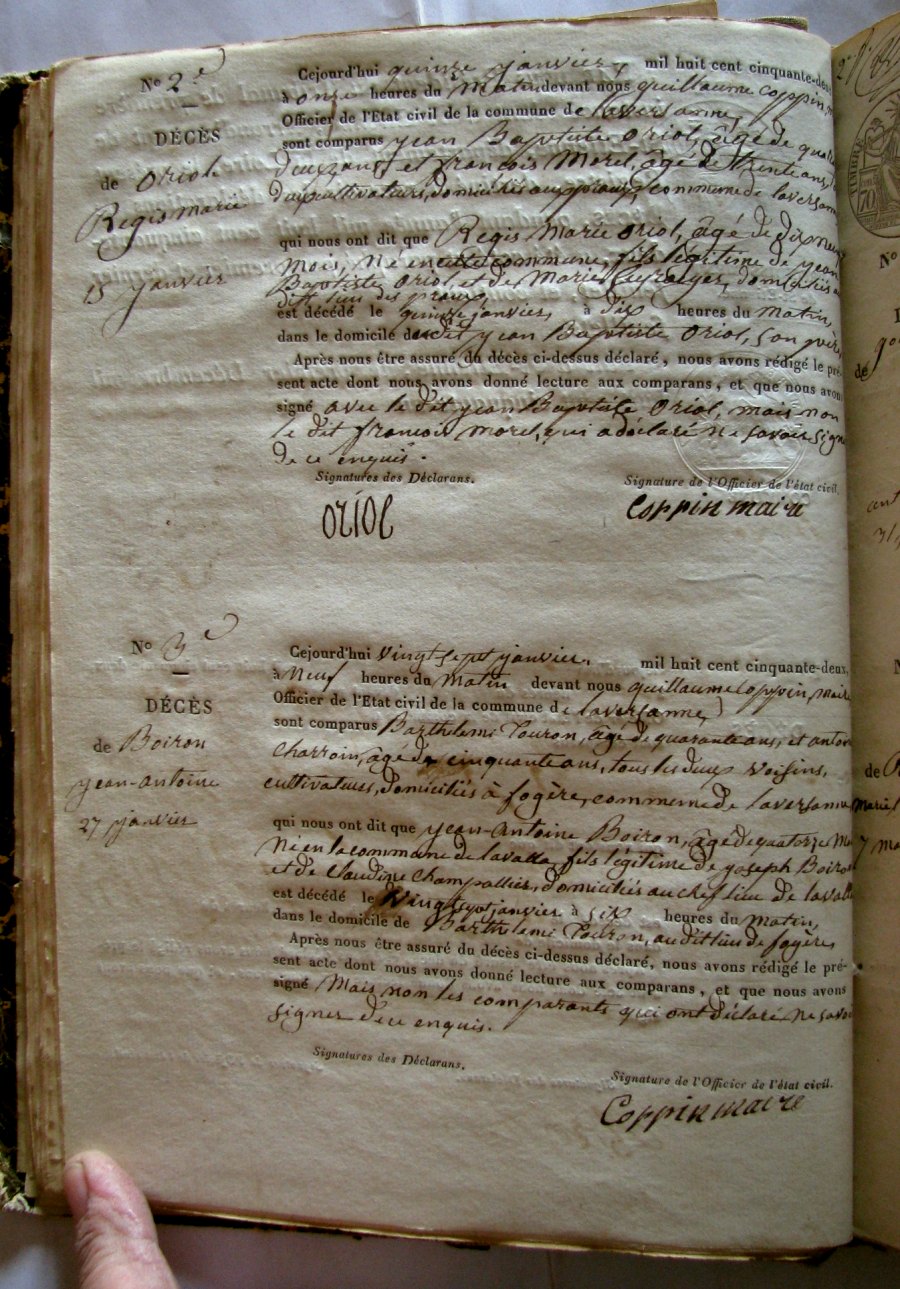 No 2e
DÉCÈS
de Oriol
Regis Marie
15 janvier
Cejourd'hui quinze janvier, mil huit cent cinquante-deux
à onze heures du Matin devant nous guillaume Coppin,
Officier de l'Etat civil de la commune de laversanne,
sont comparus jean Baptiste Oriol, âgé de
deux ans, et françois Morel, âgé de trente ans,
cultivateurs, domiciliés au, commune de laversanne
qui nous ont dit que Regis Marie oriol, âgé de dix neuf
mois, né en cette commune, fils légitime de jean
Baptiste oriol, et de Marie, domiciliés au
dit lieu des
est décédé le quinze janvier, à dix heures du matin,
dans le domicile dudit jean Baptiste Oriol, son père
Après nous être assuré du décès ci-dessus déclaré, nous avons rédigé le pré-
sent acte dont nous avons donné lecture aux comparans, et que nous avons
signé avec le dit jean Baptiste Oriol, mais non
le dit françois morel, qui a déclaré ne savoir signer
de ce enquis.
Signatures des Déclarans.
Signature de l'Officier de l'état civil.
oriol
Coppin maire
No 3e
DÉCÈS
de Boiron
jean-antoine
27 janvier
Cejourd'hui vingt sept janvier, mil huit cent cinquante-deux,
à Neuf heures du matin devant nous guillaume Coppin, maire
Officier de l'Etat civil de la commune de laversanne,
sont comparus Barthelemi Touron, âgé de quarante ans, et antoine
Charroin, âgé de cinquante ans, tous les deux voisins,
cultivateurs, domiciliés à fogère, commune de laversanne
qui nous ont dit que jean-Antoine Boiron, âgé de quatorze Mois
Né en la commune de lavalla, fils légitime de joseph Boiron
et de Claudine Champallier, domiciliés au chef lieu de lavalla
est décédé le vingt sept janvier à six heures du matin,
dans le domicile de Barthelemi Touron, au dit lieu de fogère,
Après nous être assuré du décès ci-dessus déclaré, nous avons rédigé le pré-
sent acte dont nous avons donné lecture aux comparans, et que nous avons
signé Mais non les comparants qui ont déclaré ne savoir
signer de ce enquis.
Signatures des Déclarans.
Signature de l'Officier de l'état civil.
Coppin maire